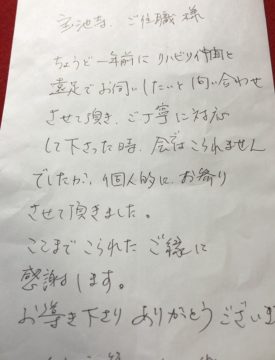 宝池寺、ご住職様
ちょうど一年前にリハビリ仲間と
遠足でお伺いしたいと問い合わせ
させて頂き、ご丁寧に対応
して下さった時、会ではこられません
でしたが、個人的にお寄り
させて頂きました。
ここまでこられたご縁に
感謝します。
お導き下さりありがとうございま